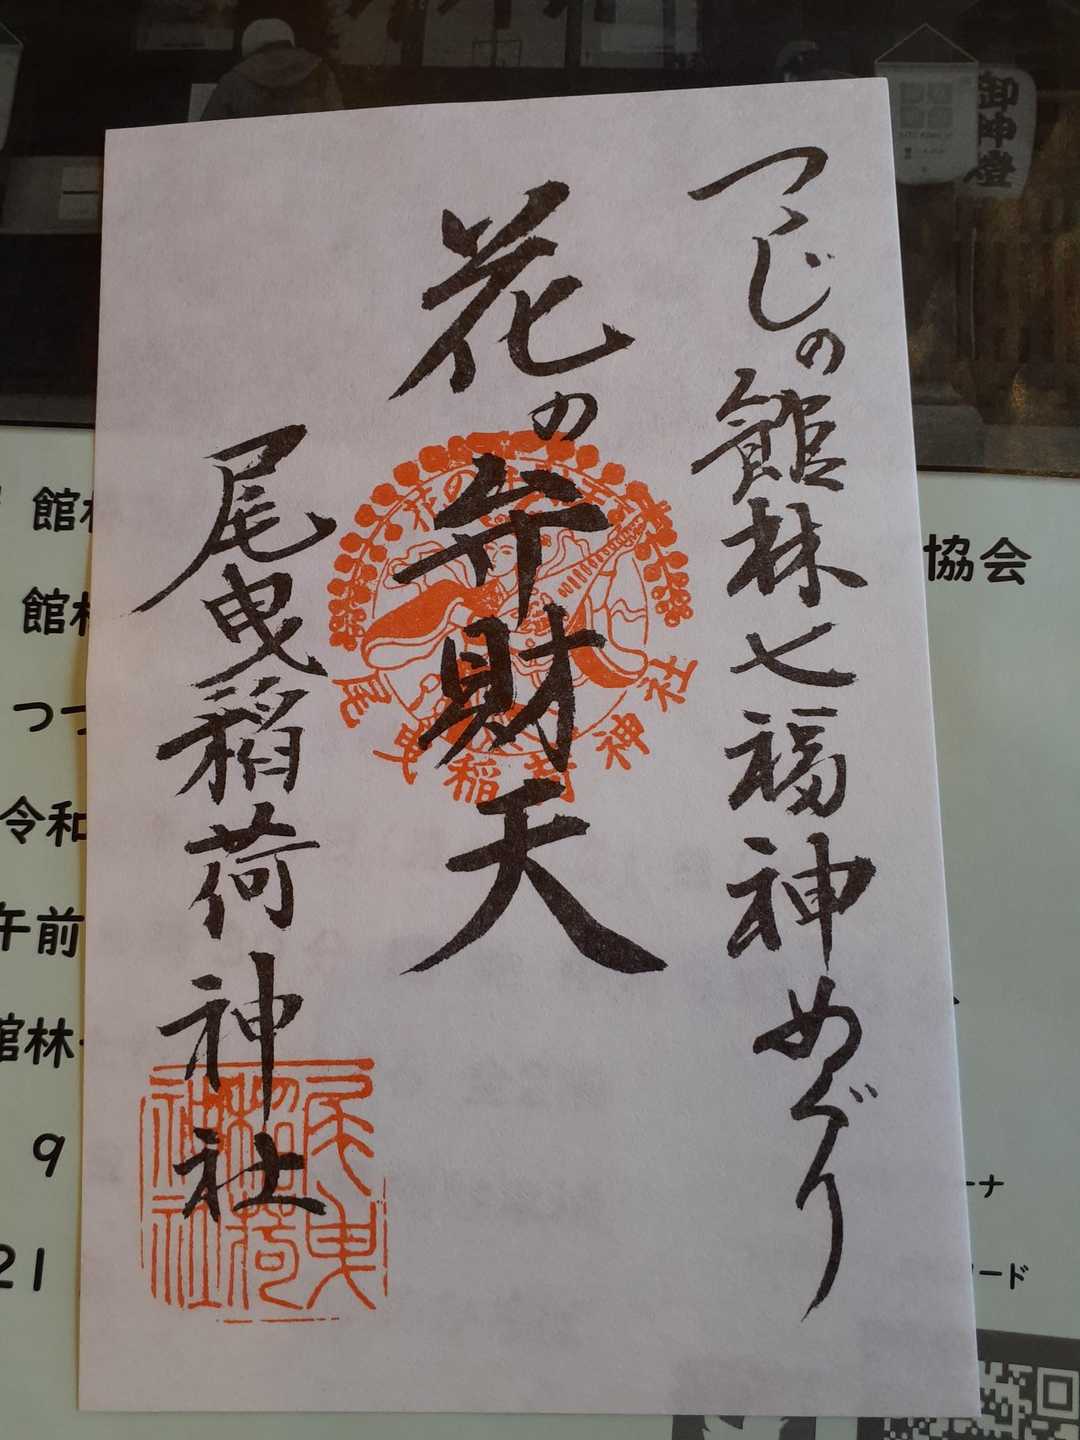 つゝじの館林七福神めぐり
花の弁財天
尾曳稲荷神社
尾曳稲荷神社
尾曳稲荷神社
御神燈
館林
館林
つつ
令和
午前
館林
9
21
協会
ーナ
ード